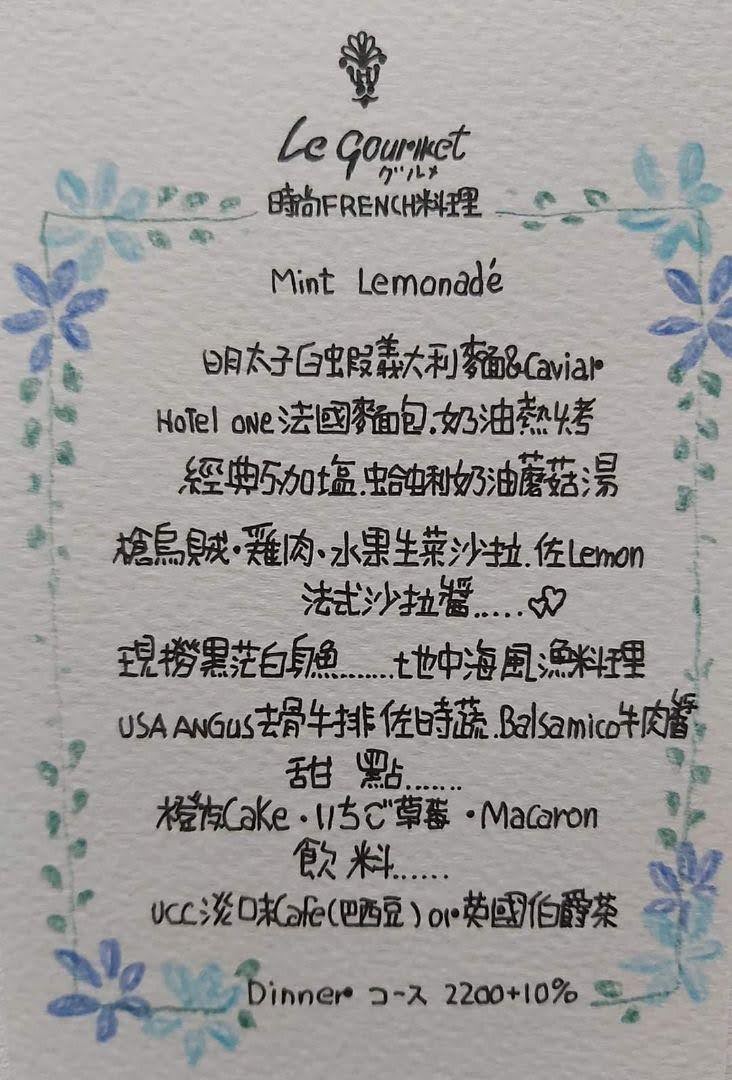 Le Gourmet
グルメ
時尚FRENCH料理
Mint Lemonadé
明太子白蝦義大利麵&Caviar
Hotel one法國麵包.奶油熱烤
經典巧加塩.蛤蜊奶油蘑菇湯
槍烏賊·雞肉·水果生菜沙拉.佐Lemon
法式沙拉醬.....
現撈黑茫白身魚.......地中海風漁料理
USA ANGUS去骨牛排佐時蔬.Balsamico牛肉醬
甜 點.......
橙皮Cake·いちご草莓·Macaron
飲 料......
UCC淡味Cafe(巴西豆)or英國伯爵茶
Dinner コース 2200+10%